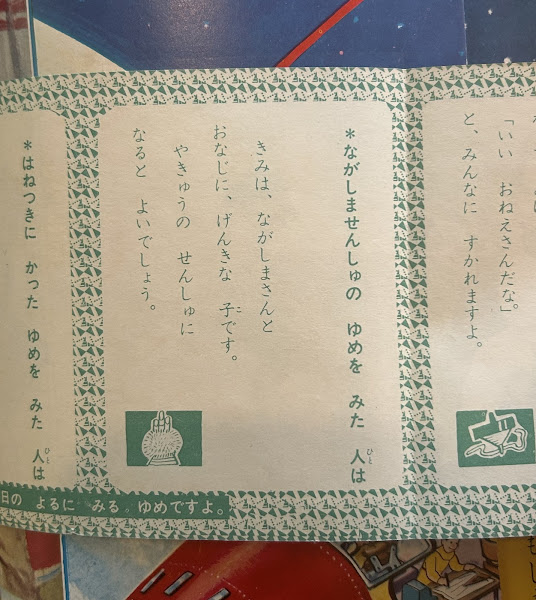 「いい　おねえさんだな。」
と、みんなに　すかれますよ。
＊ながしませんしゅの　ゆめを　みた　人は
ひと
きみは、ながしまさんと
おなじに、げんきな　子です。
こ
やきゅうの　せんしゅに
なると　よいでしょう。
＊はねつきに　かった　ゆめを　みた　人は
ひと
日の　よるに　みる。ゆめですよ。